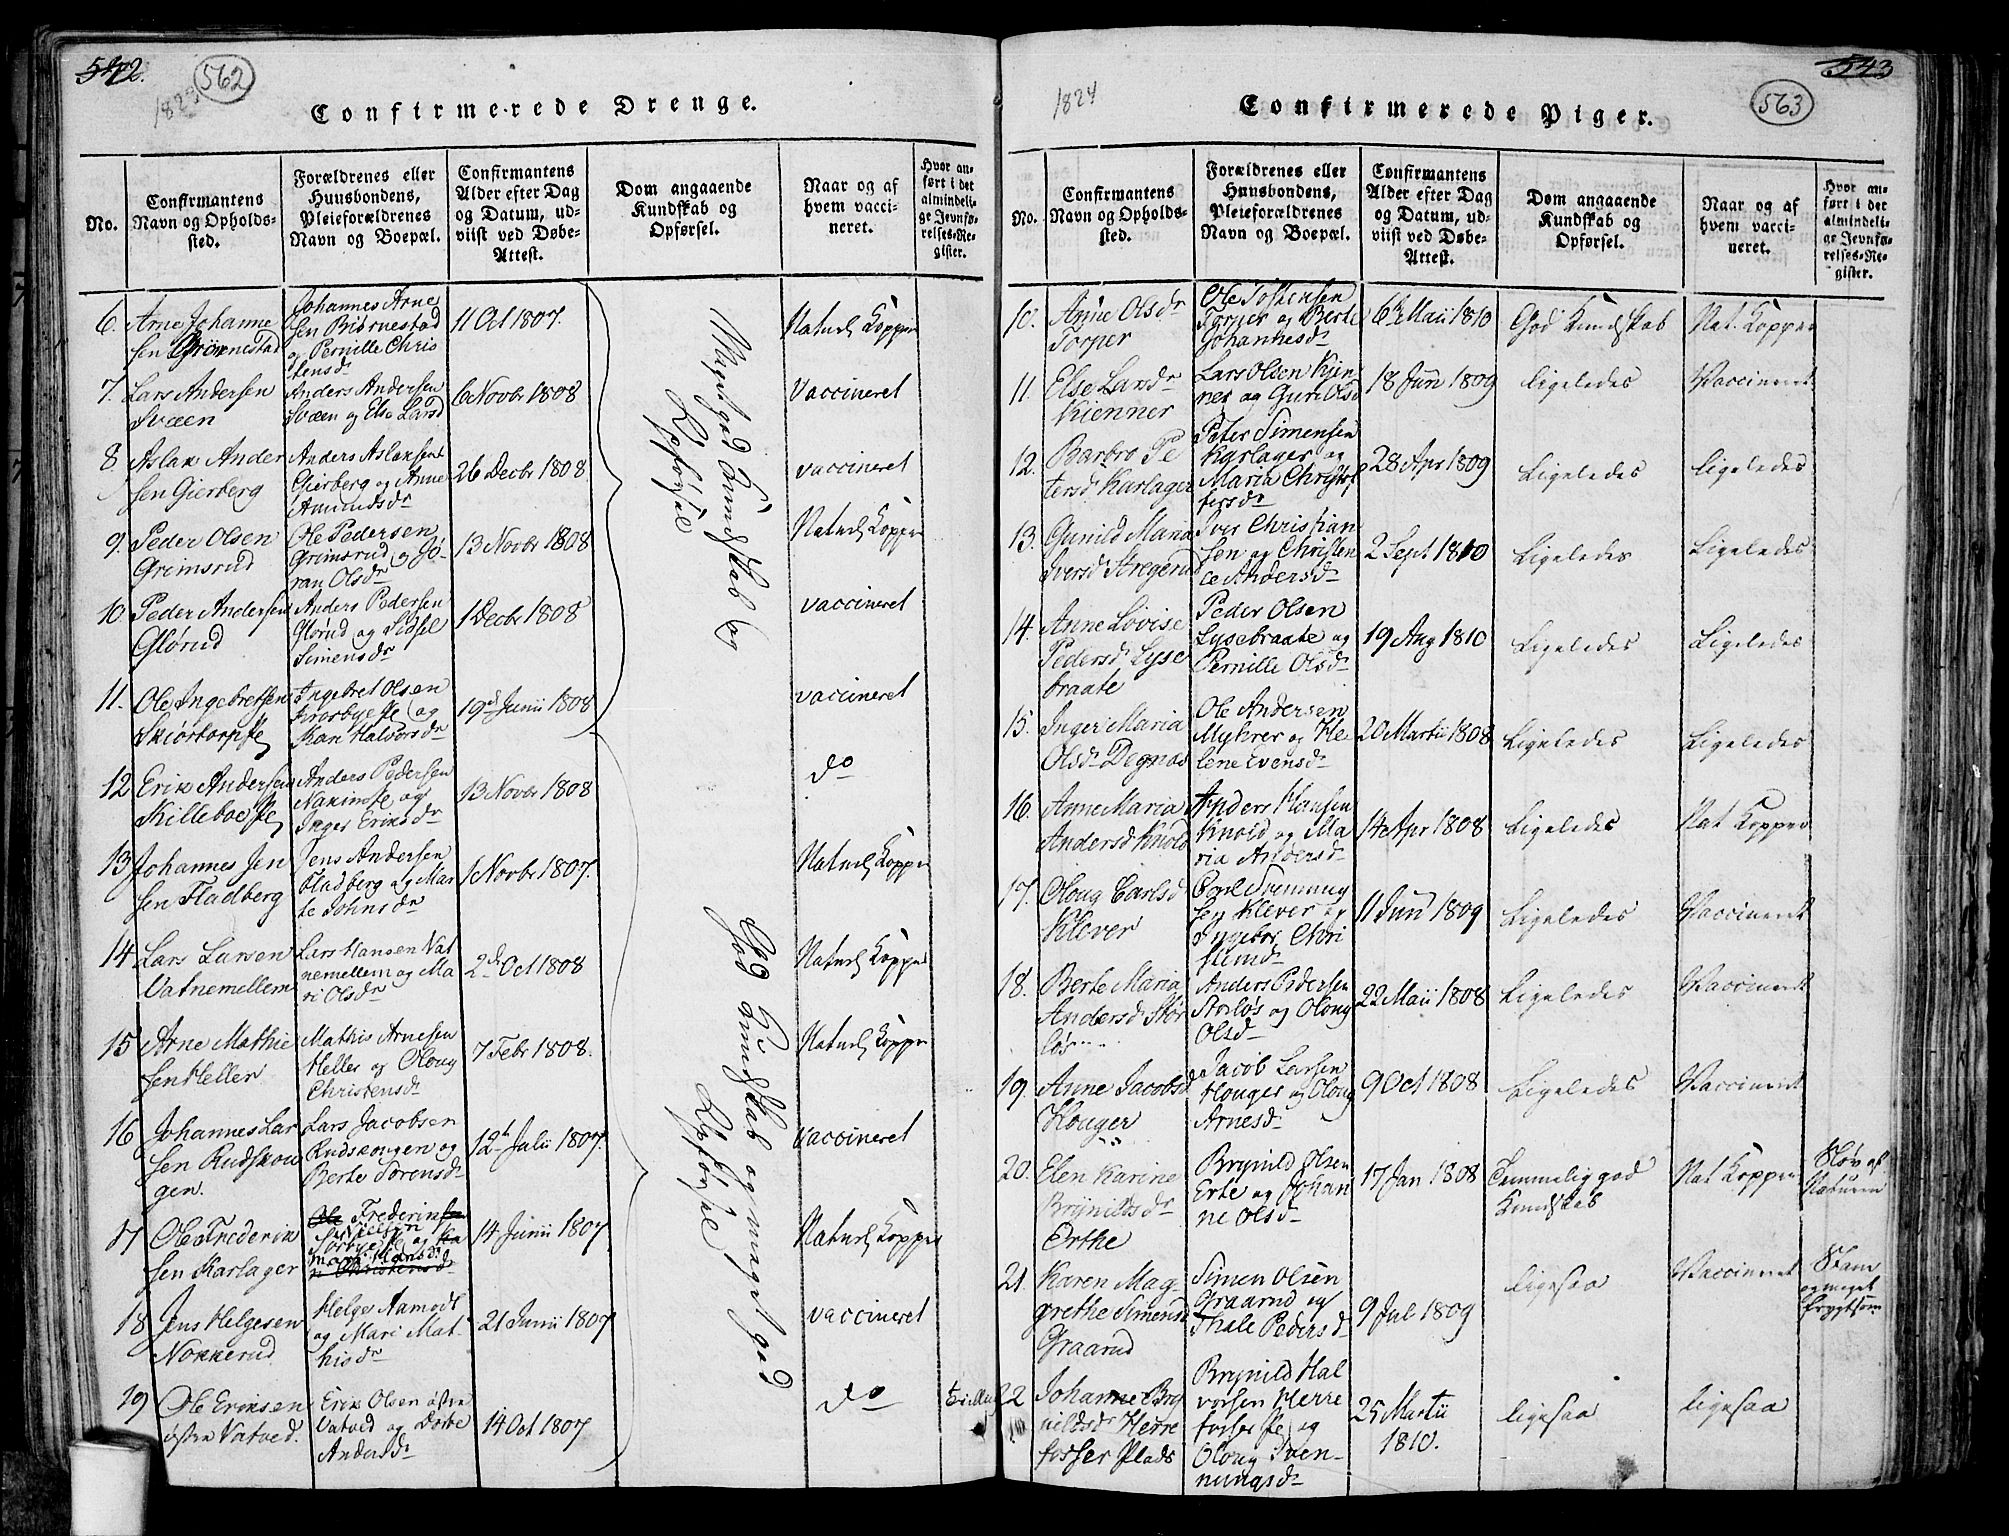 542.
562
1823
Confirmerede Drenge.
No.
Confirmantens
Navn og Opholds-
sted.
Forældrenes eller
Huusbondens,
Pleieforældrenes
Navn og Boepæl.
Confirmantens
Alder efter Dag
og Datum, ud-
viist ved Døbe-
Attest.
Dom angaaende
Kundskab og
Opførsel.
Naar og af
hvem vacci-
neret.
Hvor an-
ført i det
almindeli-
ge Jevnfø-
relses-Re-
gister.
6. Arne Johanne
sen Grönnestad
Johannes Arne
sen Biörnestad
og Pernille Chris
tensdr
11 Oct 1807.
Naturl Kopper
7. Lars Andersen
Svæen
Anders Andersen
Svæen og Else Larsd
6 Novbr 1808
Vaccineret
8 Aslak Ander
sen Gierberg
Anders Aslaksen
Gierberg og Anne
Amundsdr
26 Decbr 1808
vaccineret
9. Peder Olsen
Gremsrud
Ole Pedersen
Gremsrud og Gö-
ran Olsdr
13 Novbr 1808
Naturl Kopper
10. Peder Andersen
Glörud
Anders Pedersen
Glörud og Sidsel
Simensdr
1 Decbr 1808
vaccineret
11. Ole Ingebretsen
Skiörtorp Pl
Ingebret Olsen
Krosbye Pl og
Kari Halvorsdr
19d Junii 1808
vaccineret
12 Erik Andersen
Killeboe Pl
Anders Pedersen
og
Inger Eriksdr
13 Novbr 1808
do
13 Johannes Jen
sen Fladberg
Jens Andersen
Fladberg og Mar
te Johnsdr
1 Novbr 1807.
Naturl Kopper
14 Lars Larsen
Vatnemellem
Lars Hansen Vat
nemellem og Ma
ri Olsdr
2d Oct 1808
Naturl Kopper
15 Arne Mathie
sen Heller
Mathis Arnesen
Heller og Oloug
Christensdr
7 Febr 1808.
Naturl Kopper
16 Johannes Lar
sen Rudskou
gen.
Lars Jacobsen
Rudskougen og
Berte Sörensdr
12t Julii 1807.
vaccineret
17 Ole Frederik
sen Karlager
Ole Frederiksen
Nielsen
Torbye Pl og Ka
Mari Hansdr
n Christensdr
14 Junii 1807
Naturl Kopper
18 Jens Helgesen
Nokkerud
Helge Aamodt
og Mari Mat-
hisdr
21 Junii 1807
vaccineret
19 Ole Eriksen
östre Vatved.
Erik Olsen östre
Vatved og Dorte
Andersdr
14 Oct 1807
do
Meget god Kundskab og
Opförsel
God Kundskab og meget god
Opförsel
543
563
1824
Confirmerede Piger.
No.
Confirmantens
Navn og Opholds-
sted.
Forældrenes eller
Huusbondens,
Pleieforældrenes
Navn og Boepæl.
Confirmantens
Alder efter Dag
og Datum, ud-
viist ved Døbe-
Attest.
Dom angaaende
Kundskab og
Opførsel.
Naar og af
hvem vacci-
neret.
Hvor an-
ført i det
almindeli-
ge Jevnfø-
relses-Re-
gister.
10. Anne Olsdr
Torper
Ole Torstensen
Torper og Berte
Johannesdr
6t Maii 1810
God Kundskab
Nat. Kopper
11. Else Larsdr
Kienner
Lars Olsen Kjen
ner og Guri Olsd
18 Jun 1809
ligeledes
Vaccineret
12. Barbro Pe
tersd Karlager
Peter Simensen
Karlager og
Maria Christof
fersdr
28 Apr 1809
Ligeledes
ligeledes
13. Gunild Maria
Iversd Stregerud
Iver Christian
sen og Christen
ce Andersdr
2 Sept 1810
Ligeledes
Ligeledes
14. Anne Lovise
Pedersd Lysse
braate
Peder Olsen
Lyssebraate og
Pernille Olsdr
19 Aug 1810
Ligeledes
Ligeledes
15. Inger Maria
Olsdr Degnæs
Ole Andersen
Myhrer og He
lene Evensdr
20 Martii 1808
Ligeledes
Ligeledes
16. Anne Maria
Andersd Knold
Anders Hansen
Knold og Ma
ria Andersdr
14 Apr 1808
Ligeledes
Nat Kopper
17. Oloug Carlsd
Klever
Carl Svenning
sen Klever og
Ingebor Chri
stiansdr
11 Jun 1809
Ligeledes
Vaccineret
18. Berte Maria
Andersd Stor
lös
Anders Pedersen
Storlös og Oloug
Olsdr
22 Maii 1808
Ligeledes
Vaccineret
19. Anne Jacobsd
Houger
Jacob Larsen
Houger og Oloug
Arnesdr
9 Oct 1808
Ligeledes
Vaccineret
20. Elen Karine
Brynildsdr
Erthe
Brynild Olsen
Erte og Johan
ne Olsdr
17 Jan 1808
Temmelig god
Kundskab
Nat Kopper
Slöv af
Naturen
21. Karen Mag-
grethe Simensd
Graarud
Simen Olsen
Graarud og
Thale Pedersd
9 Jul 1809
ligesaa
Vaccineret
Stam
og meget
frygtsom
22 Johanne Bry
nildsdr Herre
fosser Plads
Brynild Hal
vorsen Herre
fosser Pl og
Oloug Sven-
nungsdr
25 Martii
1810.
ligesaa
ligesaa